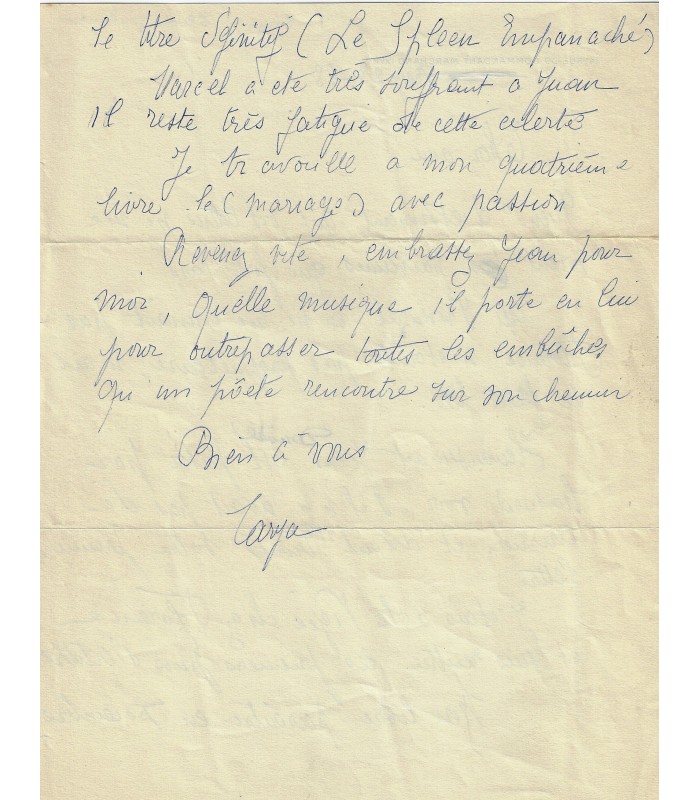 le titre définitif ( Le Spleen Empanaché )
Marcel a ete très souffrant a Juan
Il reste très fatigué de cette alerte
Je travaille a mon quatrième
livre le ( mariage ) avec passion
Revenez vite, embrassez Jean pour
moi, quelle musique il porte en lui
pour outrepasser toutes les embûches
qu un pôete rencontre sur son chemin
Bien à vous